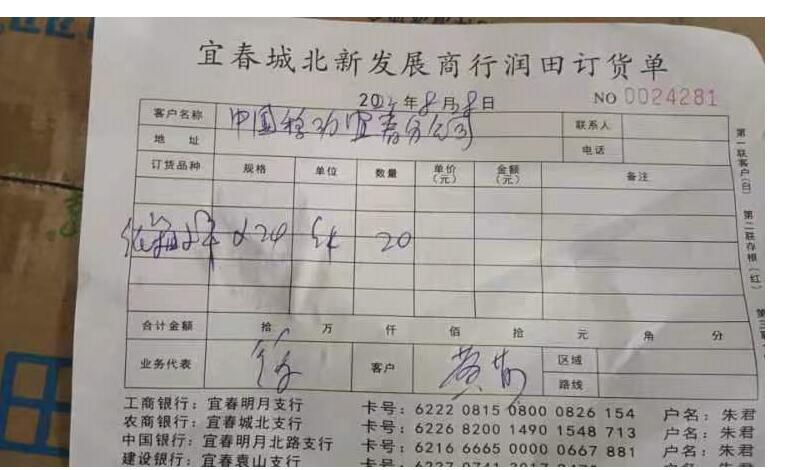 宜春城北新发展商行润田订货单
年8月8日 NO 0024281
客户名称 中国移动宜春分公司 联系人
地 址 电话
订货品种 规格 单位 数量 单价(元) 金额(元) 备注
24 20
合计金额 拾 万 仟 佰 拾 元 角 分
业务代表 客户 黄 区域
路线
工商银行：宜春明月支行 卡号：6222 0815 0800 0826 154 户名：朱君
农商银行：宜春城北支行 卡号：6226 8200 1490 1548 713 户名：朱君
中国银行：宜春明月北路支行 卡号：6216 6665 0000 0667 881 户名：朱君
建设银行：宜春袁山支行
第一联客户(白) 第二联存根(红)